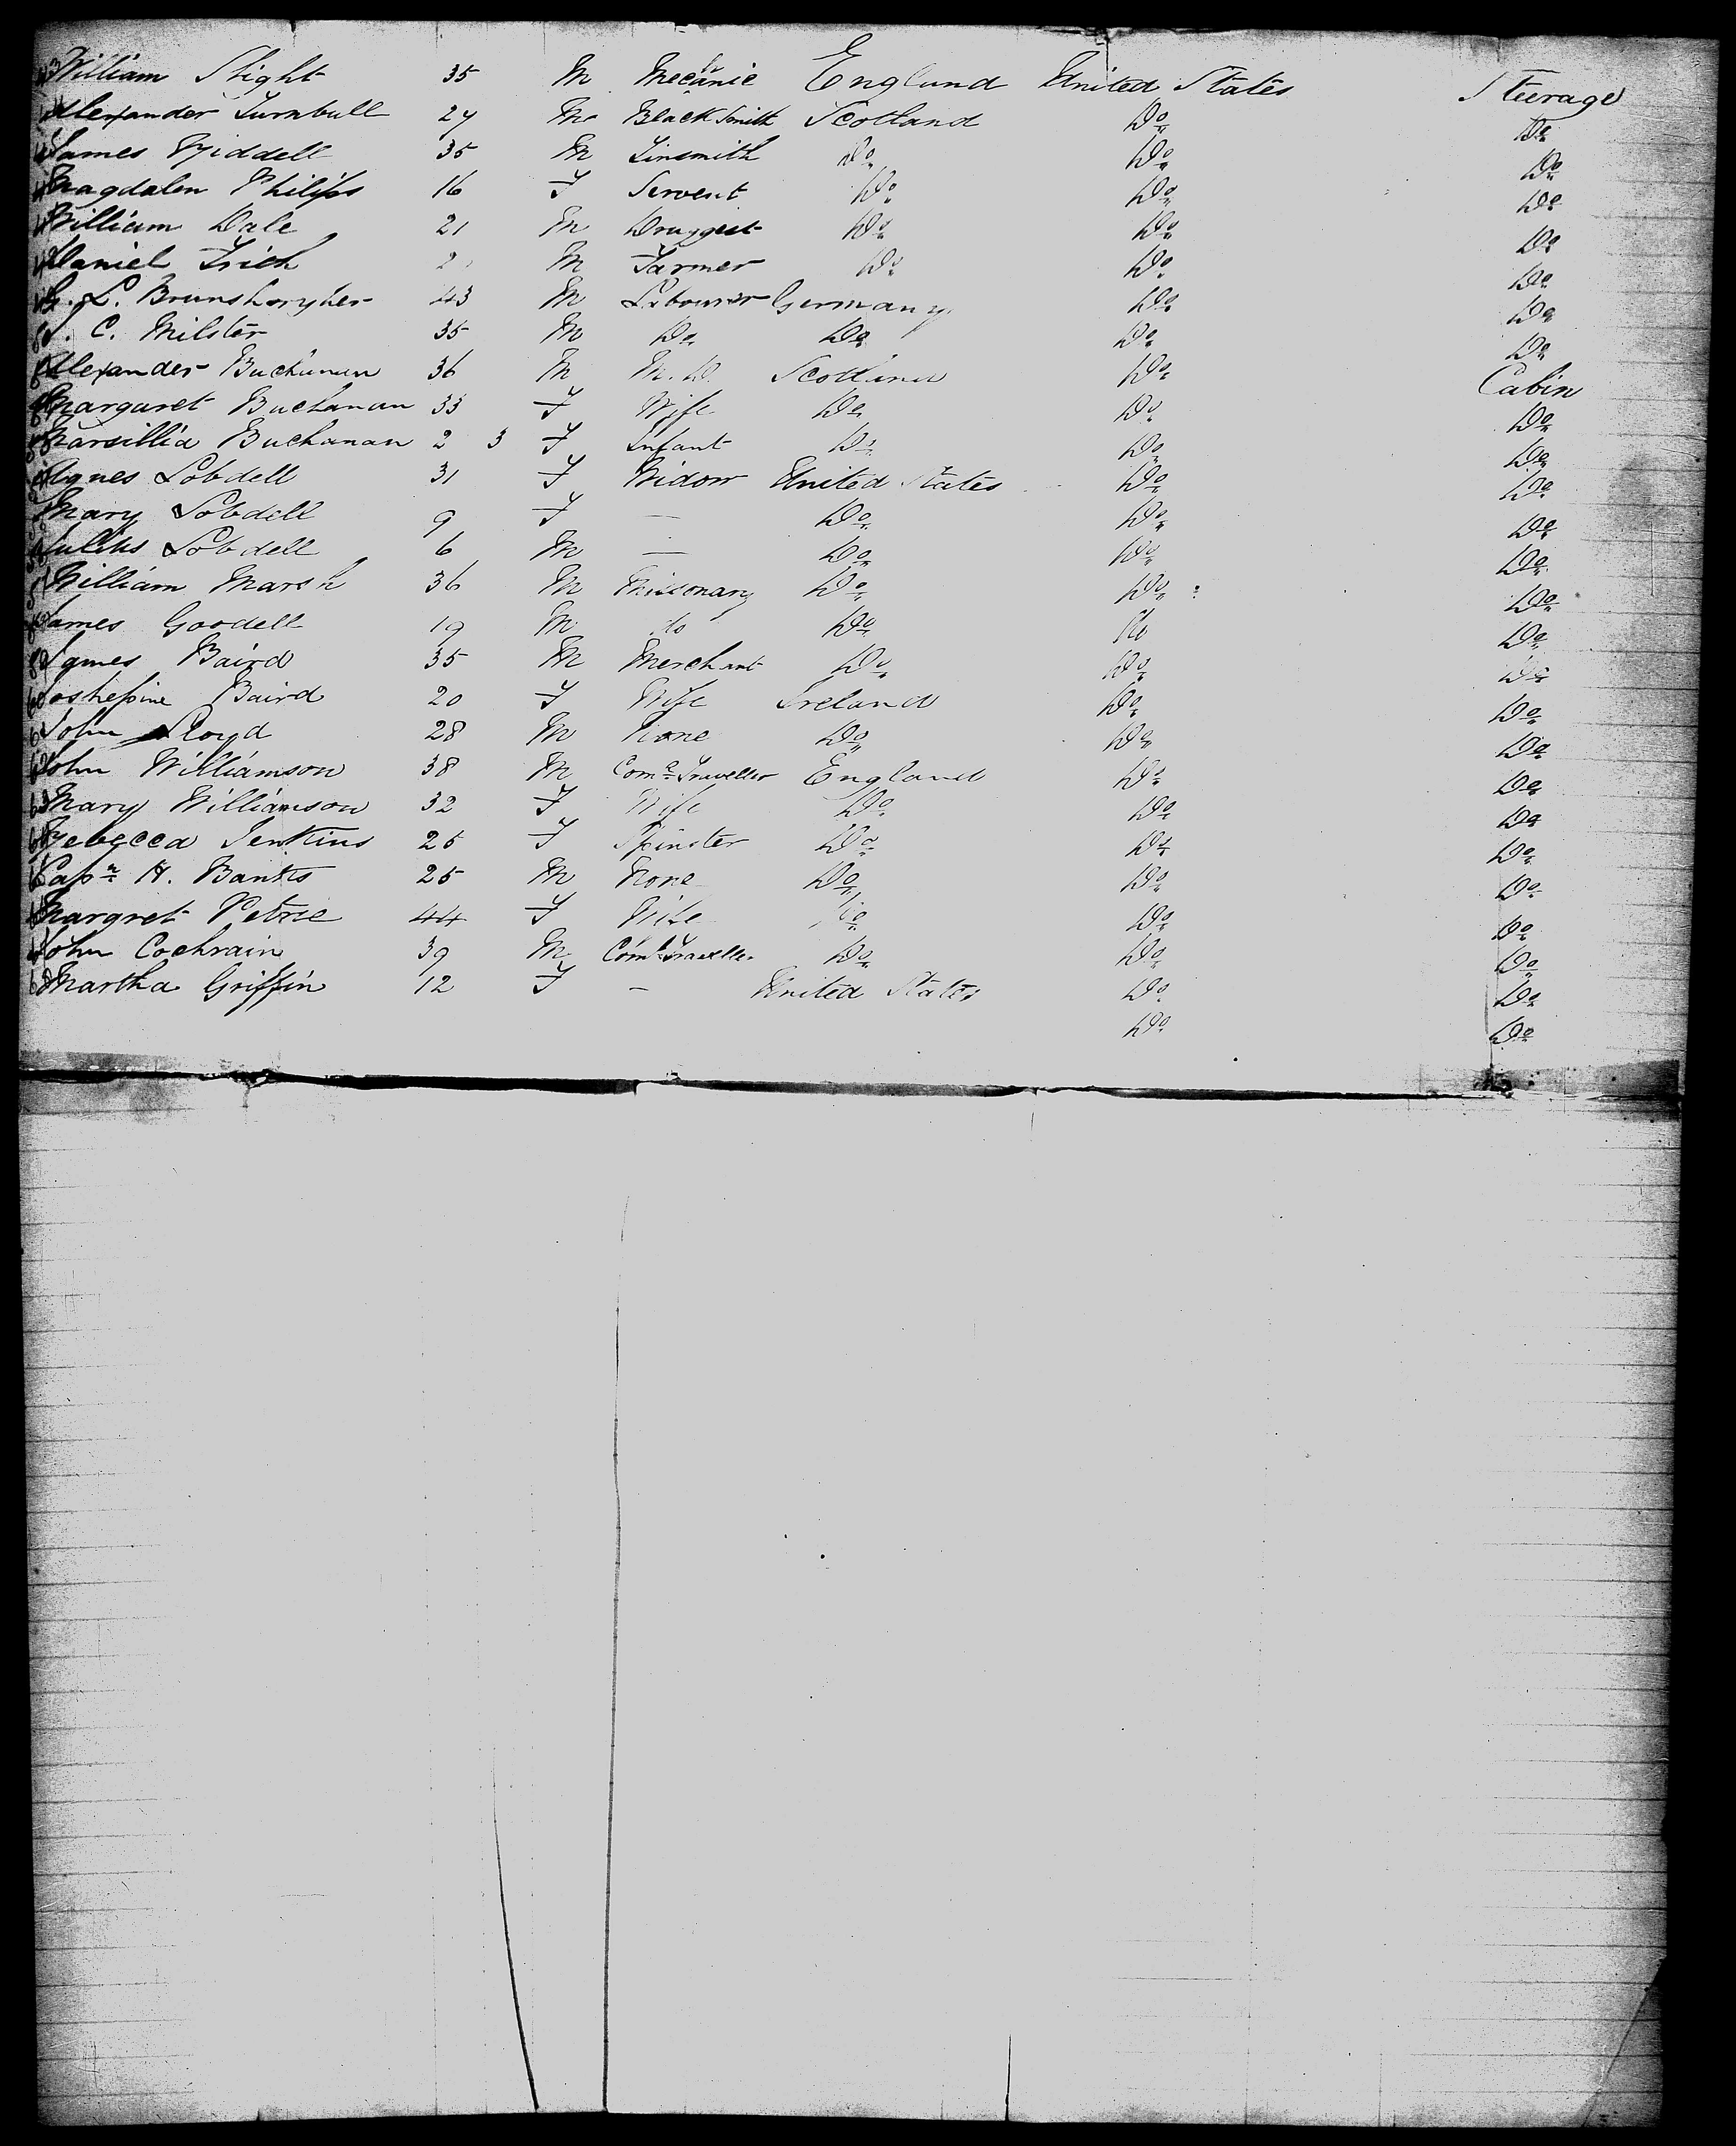 43 William Slight 35 M Mecanic England United States Steerage
Alexander Turnbull 27 M Black Smith Scotland Do Do
James Riddell 35 M Tinsmith Do Do Do
Magdalen Philips 16 F Servent Do Do Do
William Dale 21 M Druggest Do Do Do
Daniel Frich 2 M Farmer Do Do Do
L. 43 M Labourer Germany Do Do
C. Milster 35 M Do Do Do Do
Alexander Buchanan 36 M M.D. Scotland Do Cabin
Margaret Buchanan 33 F Wife Do Do Do
Marsillia Buchanan 2 3 F Infant Do Do Do
Agnes Lobdell 31 F Widow United States Do Do
Mary Lobdell 9 F — Do Do Do
Julius Lobdell 6 M — Do Do Do
William Marsh 36 M Missonary Do Do Do
James Goodell 19 M do Do Do Do
James Baird 35 M Merchant Do Do Do
Joshepine Baird 20 F Wife Ireland Do Do
John Lloyd 28 M None Do Do Do
John Williamson 38 M Coml Traveller England Do Do
63 Mary Williamson 32 F Wife Do Do Do
Rebecca Jenkins 25 F Spinster Do Do Do
Capn H. Banks 25 M None Do Do Do
Margret Petrie 44 F Wife Do Do Do
John Cochrain 39 M Coml Traveller Do Do Do
68 Martha Griffin 12 F — United States Do Do
Do Do